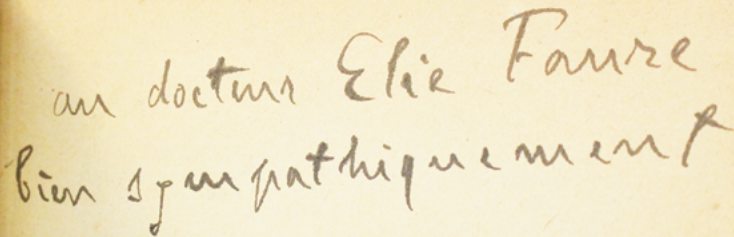 au docteur Elie Faure
bien sympathiquement